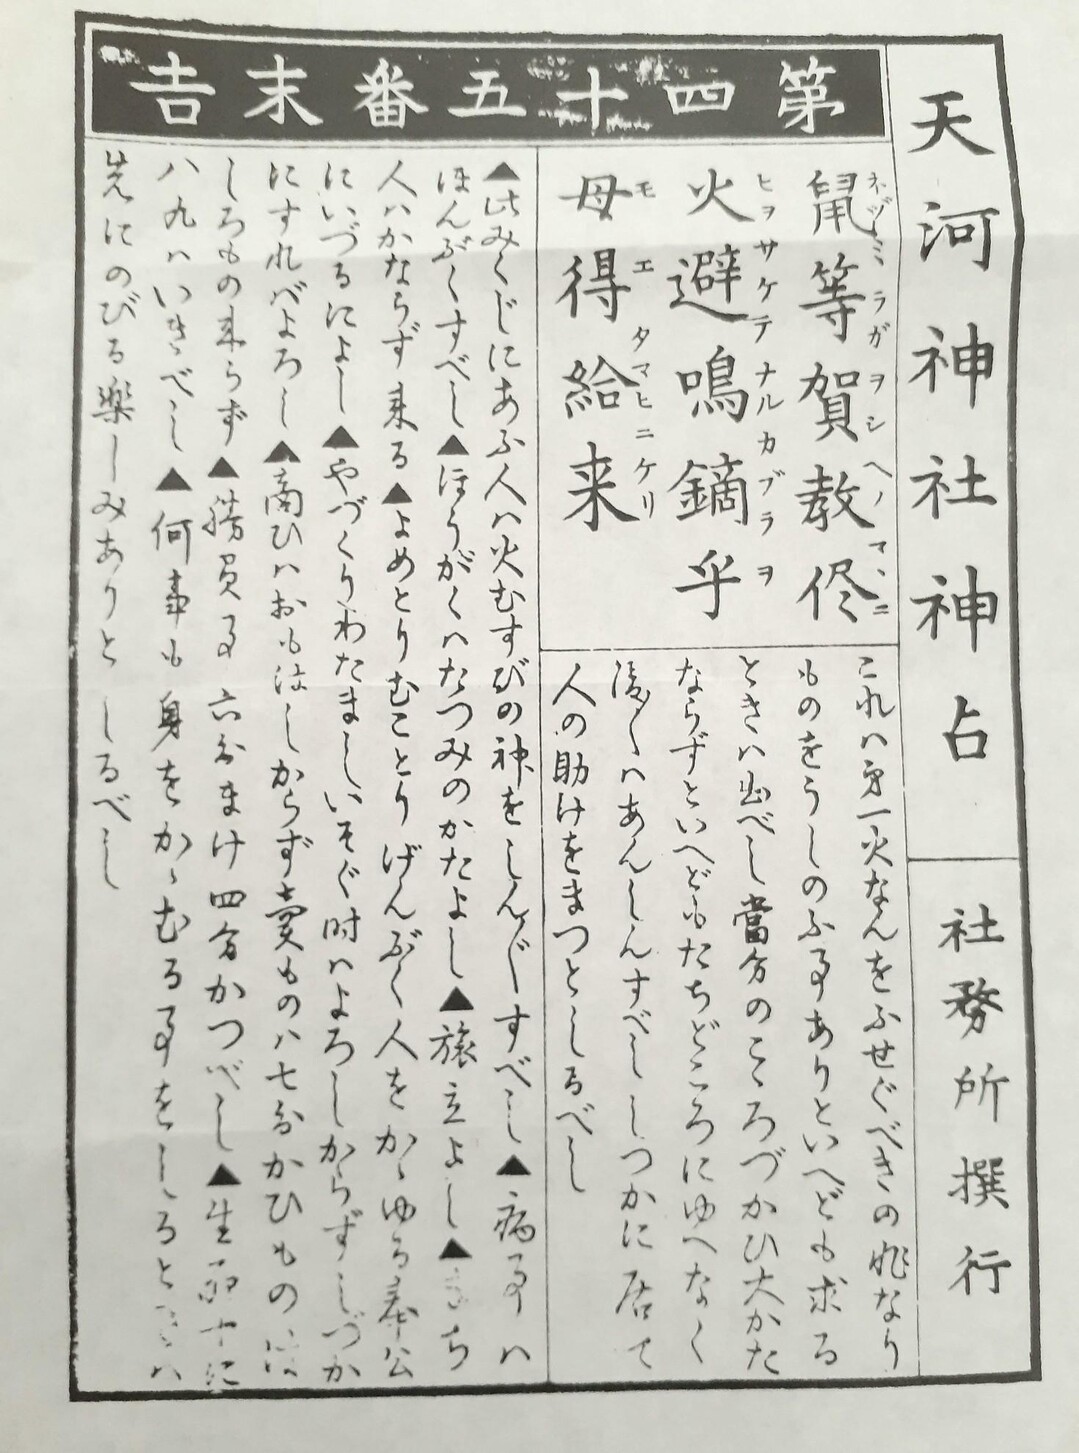 天河神社神占
社務所撰行
第四十五番末吉
鼠等賀教侭
ネヅミラガヲシヘノマヽニ
火避鳴鏑乎
ヒヲサケテナルカブラヲ
母得給来
モエタマヒニケリ
これハ第一火なんをふせぐべきの兆なり
ものをうしのふ事ありといへども求る
ときハ出べし當分のこゝろづかひ大かた
ならずといへどもたちどころにゆへなく
後〳〵ハあんしんすべししつかに居て
人の助けをまつとしるべし
▲此みくじにあふ人ハ火むすびの神をしんじすべし▲病事ハ
ほんぶくすべし▲ほうがくハたつみのかたよし▲旅立よし▲まち
人ハかならず来る▲よめとりむことりげんぶく人をかゝゆる奉公
にいづるによし▲やづくりわたましいそぐ時ハよろしからずしづか
にすれバよろし▲商ひハおもはしからず賣もの八七分かひもの
しろもの来らず▲勝負事六分まけ四分かつべし▲生死十に
八九ハいきべし▲何事も身をかゝむる事をしるとき ハ
先にのびる楽しみありとしるべし